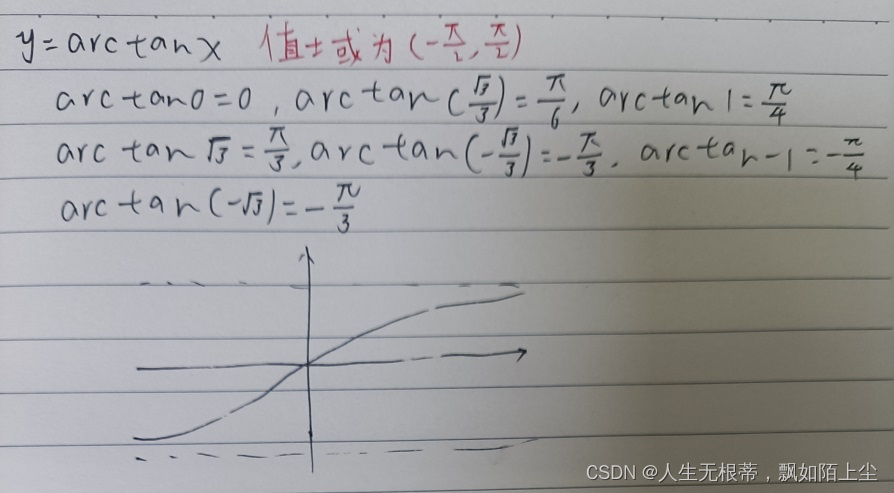 y=arctanx 值域为(-π/2,π/2)
arctan0=0,arctan(√3/3)=π/6,arctan1=π/4
arctan√3=π/3,arctan(-√3/3)=-π/3,arctan-1=-π/4
arctan(-√3)=-π/3
CSDN @人生无根蒂，飘如陌上尘